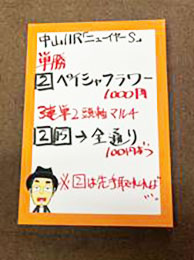 中山11R「ニューイヤーS」
単勝
② ペイシャフラワー
1000円
3連単2頭軸マルチ
②⑮→全通り
100円ずつ
※②は先手取れれば…。